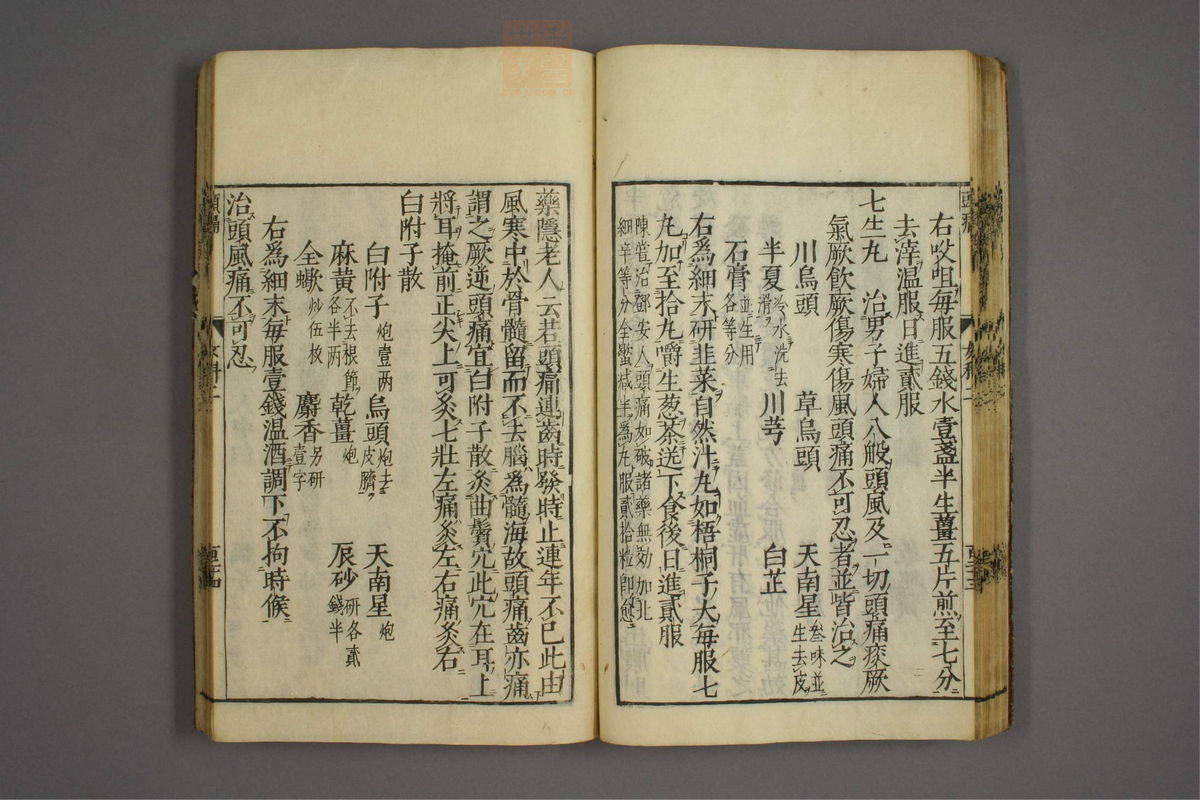 右㕮咀每服五錢水壹盞半生薑五片煎至七分
去滓溫服日進貳服
七生丸　治男子婦人八般頭風及一切頭痛痰厥
氣厥飲厥傷寒傷風頭痛不可忍者並皆治之
川烏頭　草烏頭　天南星叄味並生去皮
半夏冷水洗去滑　川芎　白芷
石膏並生用各等分
右爲細末研韭菜自然汁丸如梧桐子大每服七
丸加至拾丸嚼生葱茶送下食後日進貳服
陳菅治鄱安人頭痛如破諸藥無効加北
細辛等分全蠍减半爲丸服貳拾粒即愈
藥隱老人云若頭痛連齒時發時止連年不已此由
風寒中於骨髓留而不去腦爲髓海故頭痛齒亦痛
謂之厥逆頭痛宜白附子散灸曲鬢穴此穴在耳上
將耳掩前正尖上可灸七壯左痛灸左右痛灸右
白附子散
白附子炮壹两　烏頭炮去皮臍　天南星炮
麻黃不去根節各半两　乾薑炮　辰砂研各貳錢半
全蠍炒伍枚　麝香另研壹字
右爲細末每服壹錢溫酒調下不拘時候
治頭風痛不可忍